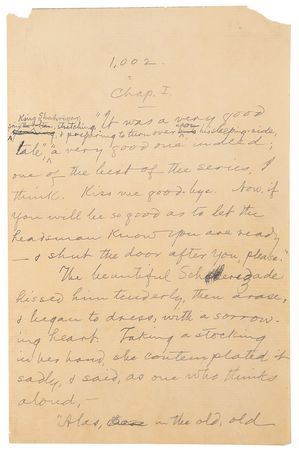 1,002.
Chap. I.
King Shahriyar,
"It was a very good
said the sultan, stretching, & preparing to turn over on his sleeping-side,
tale" a very good one indeed;
one of the best of the series, I
think. Kiss me good-bye. Now, if
you will be so good as to let the
headsman know you are ready
— & shut the door after you, please."
The beautiful Scheherezade
kissed him tenderly, then arose,
& began to dress, with a sorrow-
ing heart. Taking a stocking
in her hand, she contemplated it
sadly, & said, as one who thinks
aloud,—
"Alas, in the old, old